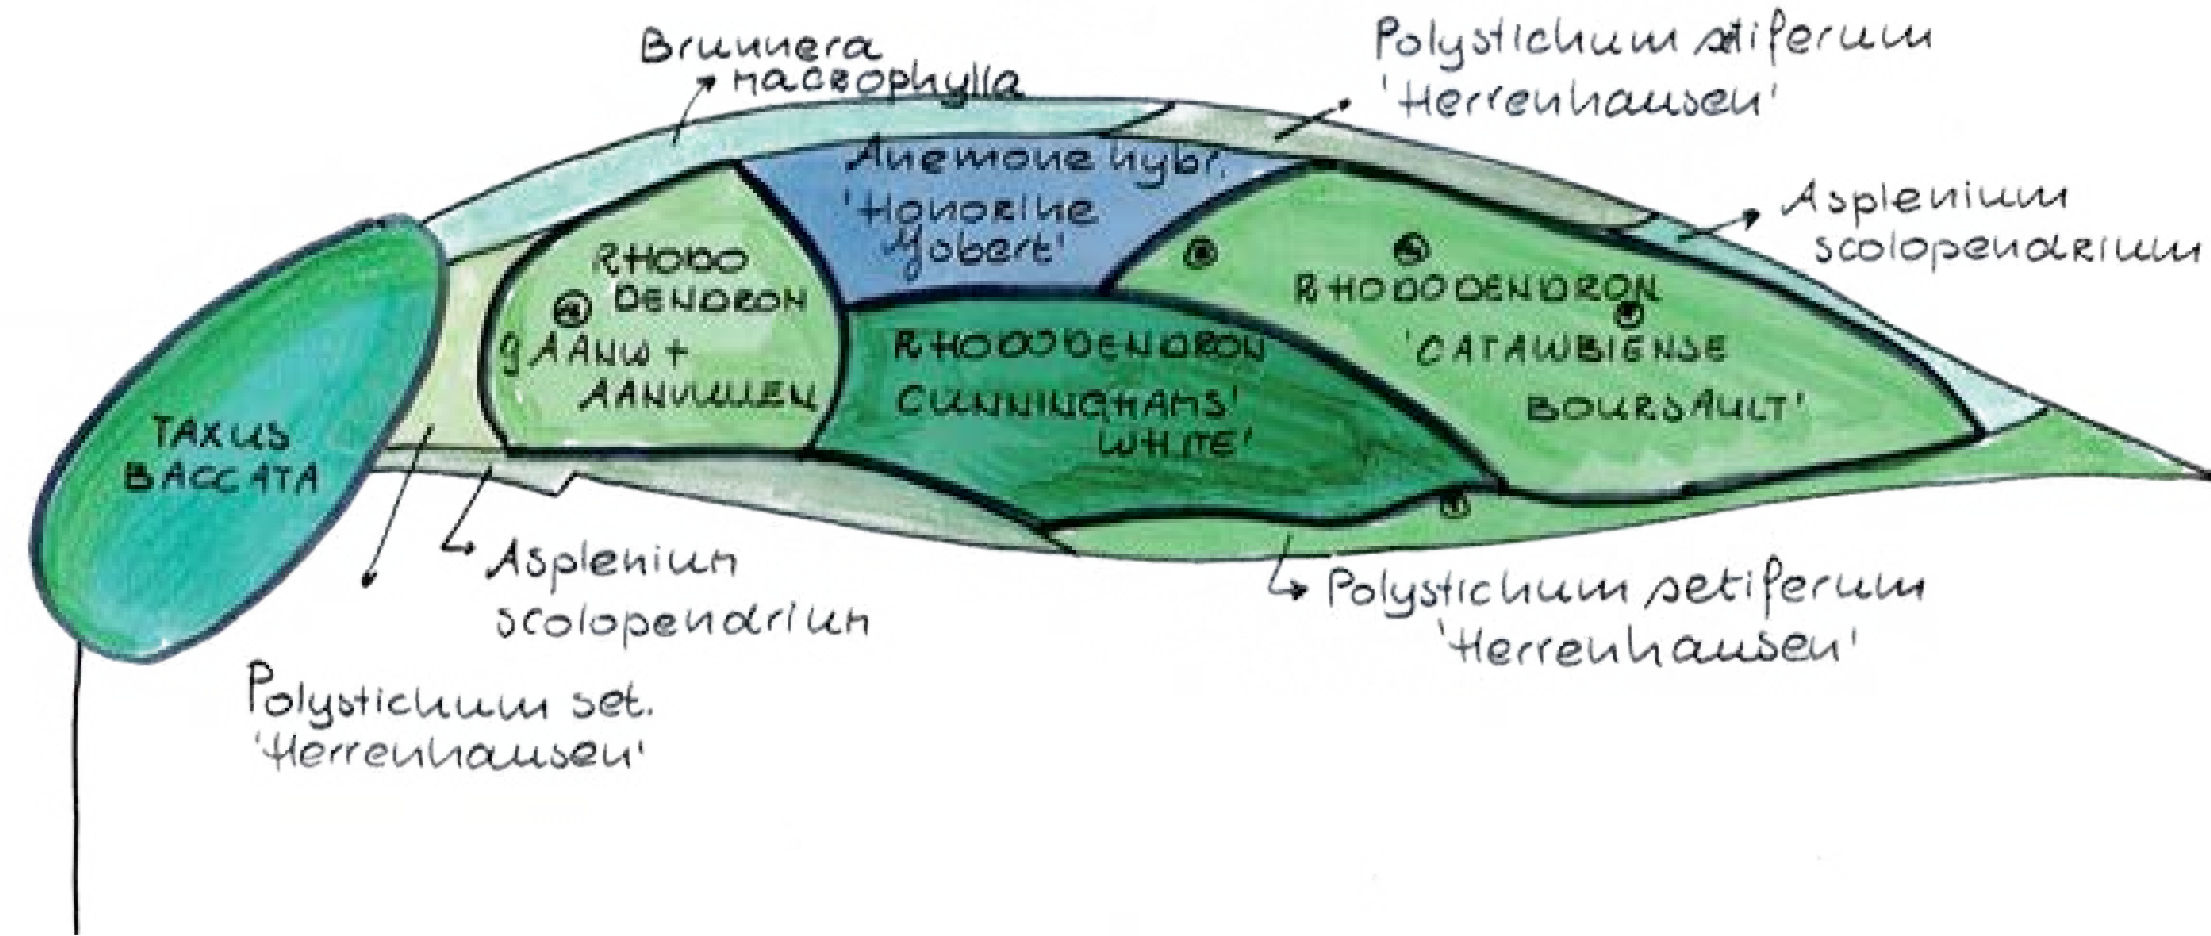 Brunnera
macrophylla
Polystichum setiferum
'Herrenhausen'
Anemone hybr.
'Honorine
Jobert'
Asplenium
scolopendrium
RHODO
DENDRON
gAANW +
AANVULLEN
RHODODENDRON
CUNNINGHAMS'
WHITE'
RHODODENDRON
'CATAWBIENSE
BOURSAULT'
TAXUS
BACCATA
Asplenium
scolopendrium
Polystichum setiferum
'Herrenhausen'
Polystichum set.
'Herrenhausen'